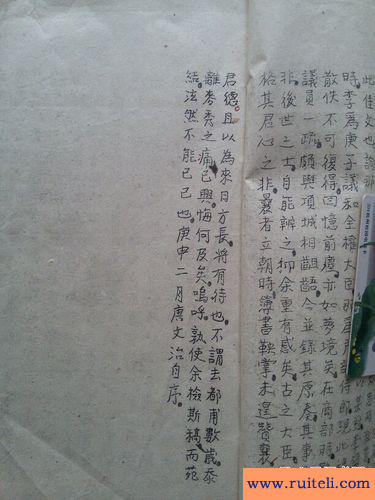 此佳文也
時李爲庚子議和全權大臣
散佚不可復得回憶前塵亦如夢境矣在商部時
議員一疏頗與項城相齟齬今並錄其原奏其事
非後世之士自能辨之抑余重有感矣古之大臣
格其君心之非曩者立朝時簿書鞅掌未遑贊襄
君德且以為來日方長將有待也不謂去都甫數歲黍
離麥秀之痛已興悔何及矣嗚呼孰使余檢斯稿而菀
結泫然不能已已也庚申二月唐文治自序
www.ruiteli.com